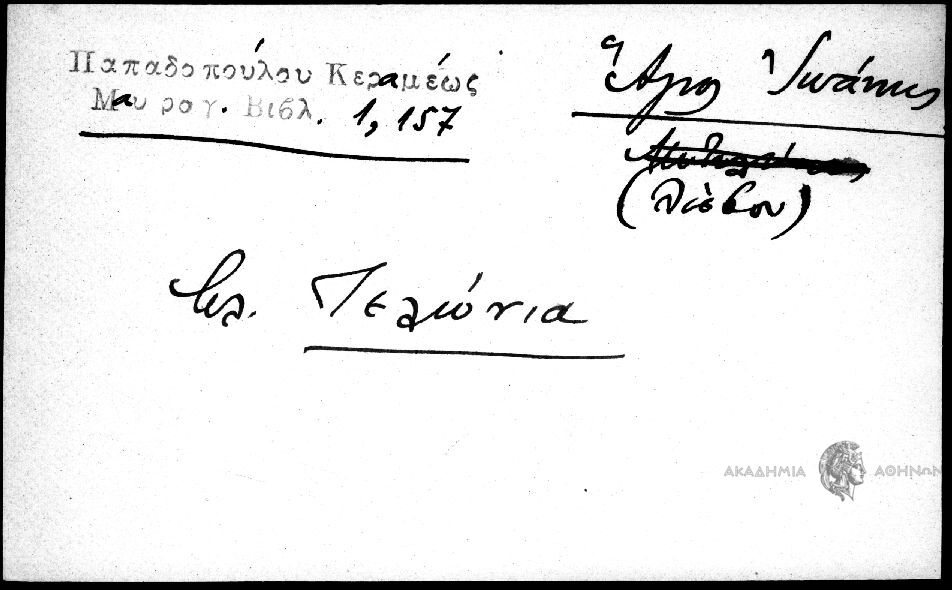 Παπαδοπούλου Κεραμέως
Μαυρογ. Βιβλ. 1, 157
Ἅγιος Ἰωάννης
(Λέσβου)
βλ. Τελώνια
ΑΚΑΔΗΜΙΑ ΑΘΗΝΩΝ